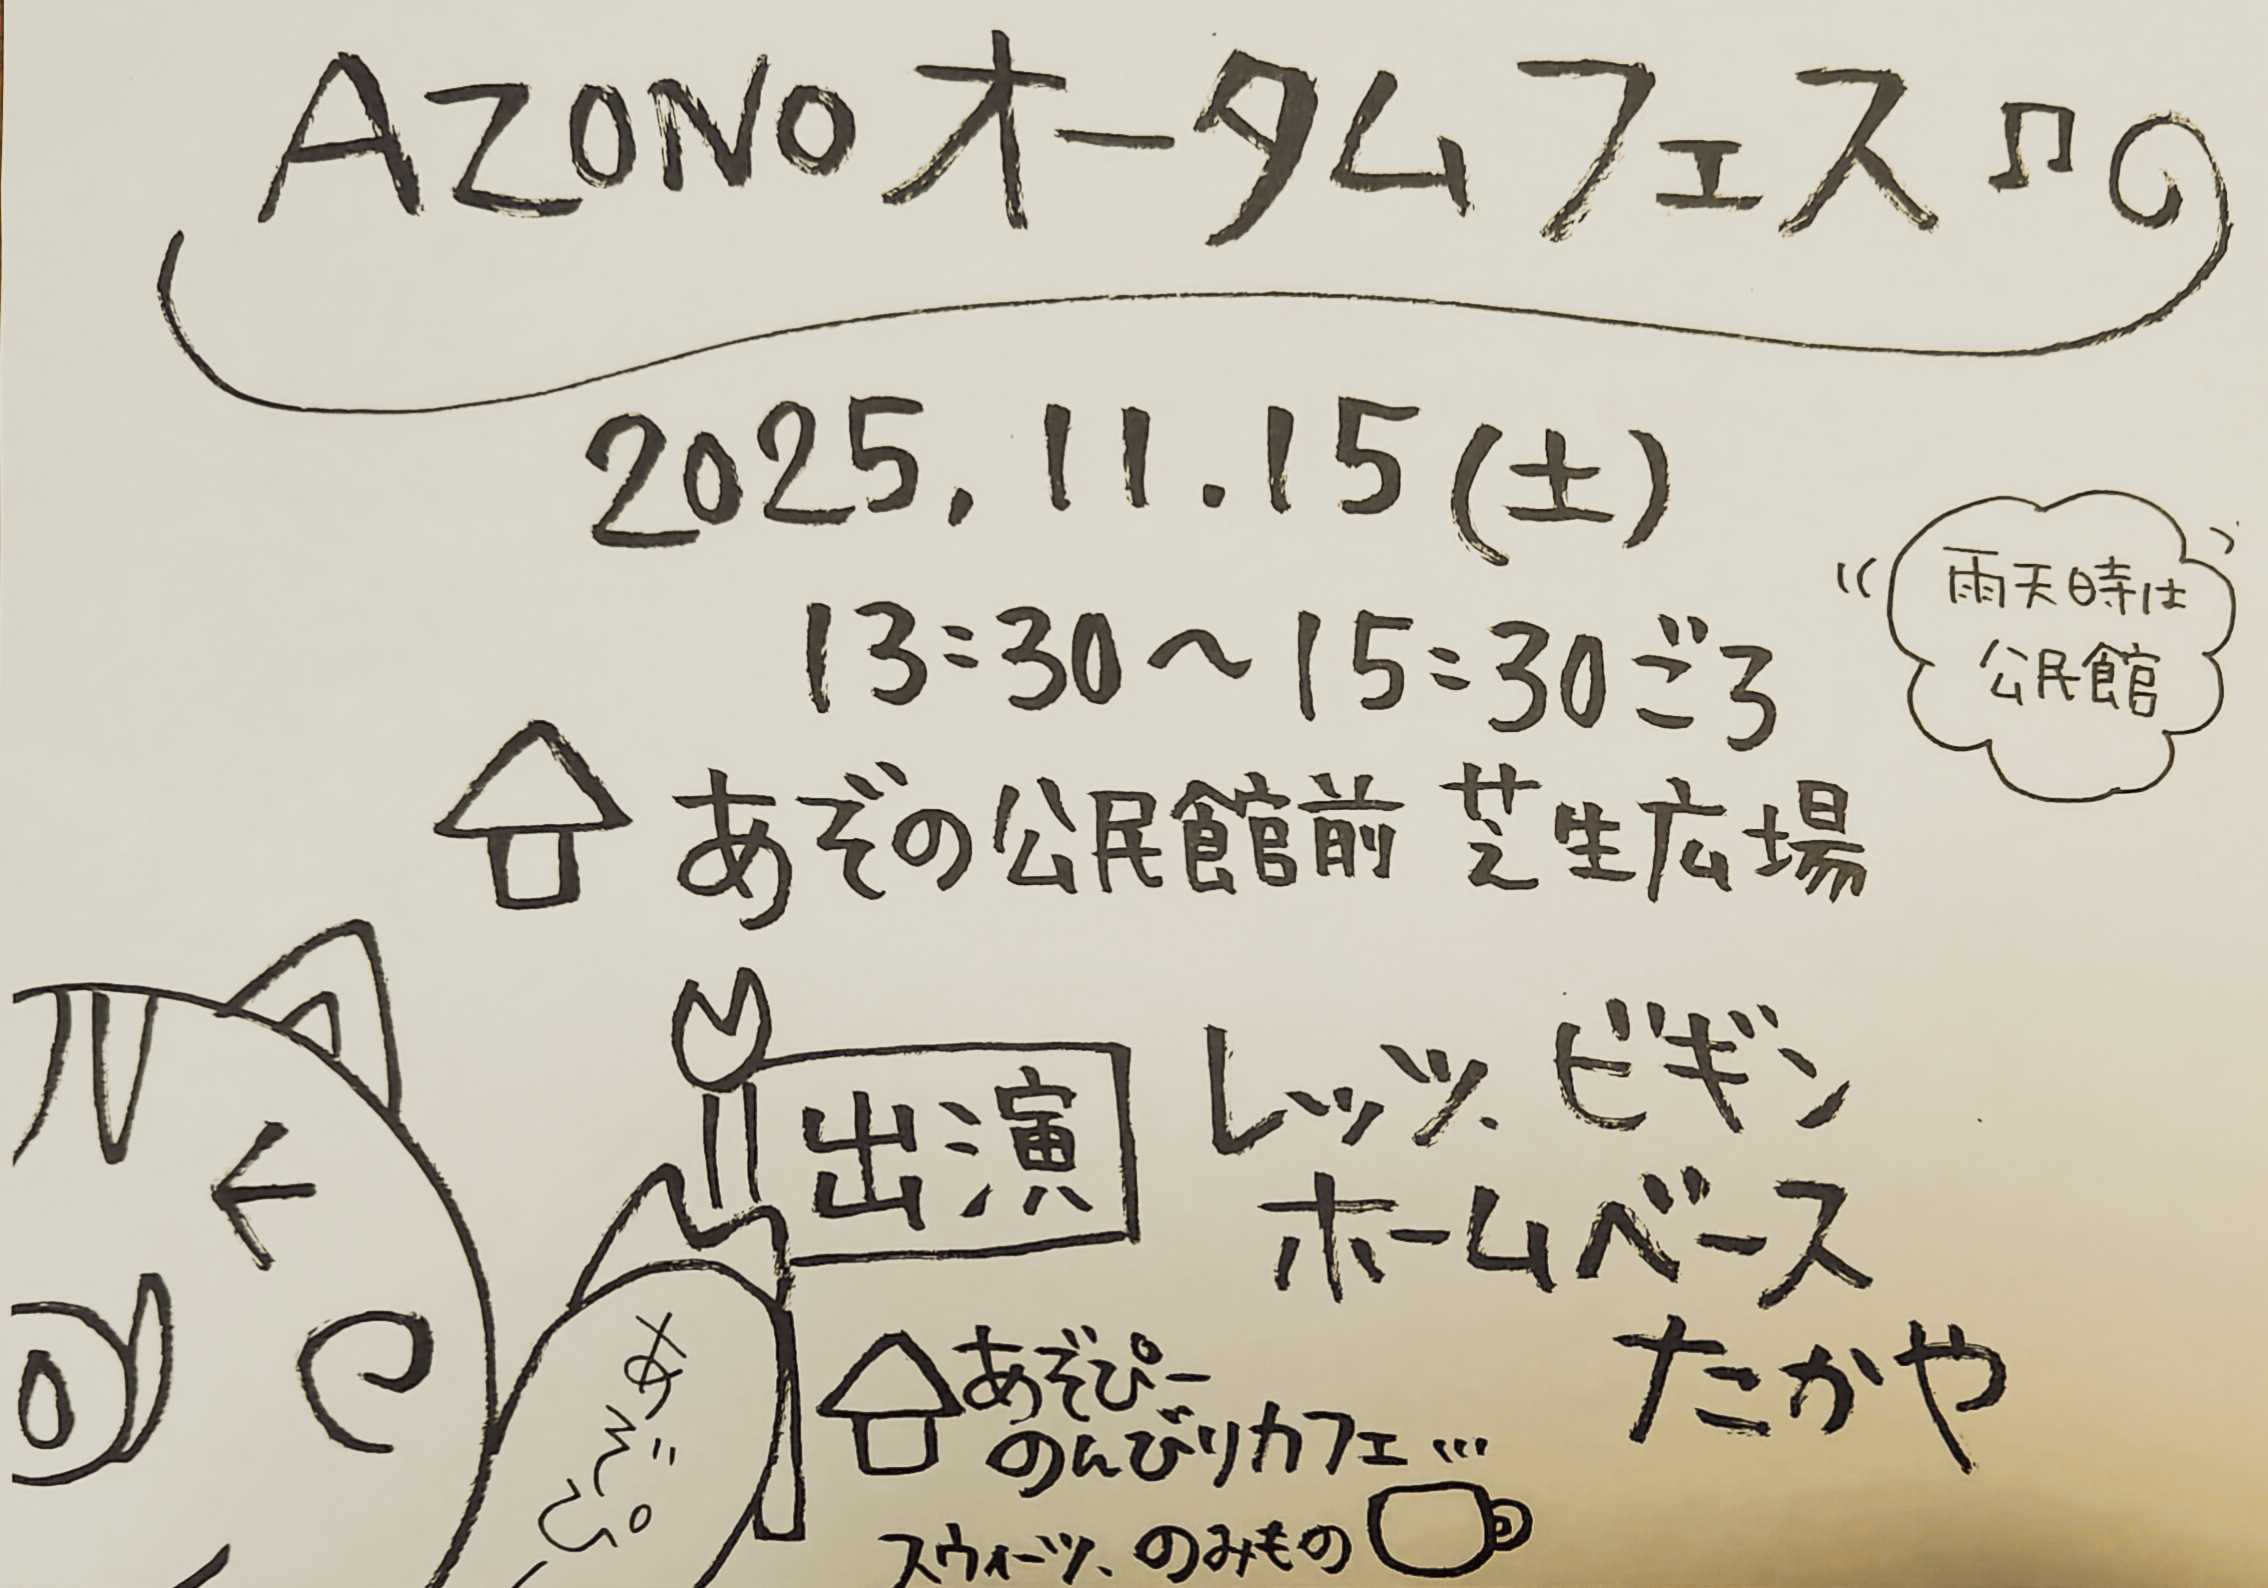 AZONO オータムフェス♫
2025.11.15(土)
13:30〜15:30ごろ
雨天時は
公民館
あぞの公民館前 芝生広場
出演
レッツ、ビギン
ホームベース
たかや
あぞぴ
あぞぴー
のんびりカフェ…
スウィーツ、のみもの